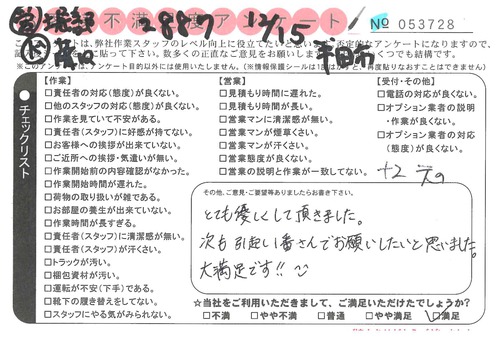 不満足アンケート
2887 12/15
№ 053728
半田市
トは、弊社作業スタッフのレベル向上に役立てたいと
否定的なアンケートになりますので、
くつでも結構です。
※このアンケートは、アンケート目的以外には使用いたしません。
チェックリスト
【作業】
□責任者の対応(態度)が良くない。
□他のスタッフの対応(態度)が良くない。
□作業を見ていて不安がある。
□責任者(スタッフ)に好感が持てない。
□お客様への挨拶が出来ていない。
□ご近所への挨拶・気遣いが無い。
□作業開始前の内容確認がなかった。
□作業開始時間が遅れた。
□荷物の取り扱いが雑である。
□お部屋の養生が出来ていない。
□作業時間が長すぎる。
□責任者(スタッフ)に清潔感が無い。
□責任者(スタッフ)が汗くさい。
□トラックが汚い。
□梱包資材が汚い。
□運転が不安(下手)である。
□靴下の履き替えをしてない。
□スタッフにやる気がみられない。
【営業】
□見積もり時間に遅れた。
□見積もり時間が長い。
□営業マンに清潔感が無い。
□営業マンが煙草くさい。
□営業マンが汗くさい。
□営業態度が良くない。
□営業の説明と作業が一致してない。
【受付・その他】
□電話の対応が良くない。
□オプション業者の説明
・作業が良くない。
□オプション業者の対応
(態度)が良くない。
その他、ご意見・ご要望等ありましたらお書き下さい。
とても優しくして頂きました。
次も引越し1番さんでお願いしたいと思いました。
大満足です!!
☆当社をご利用いただきまして、ご満足いただけたでしょうか?
□不満 □やや不満 □普通 □やや満足 □満足